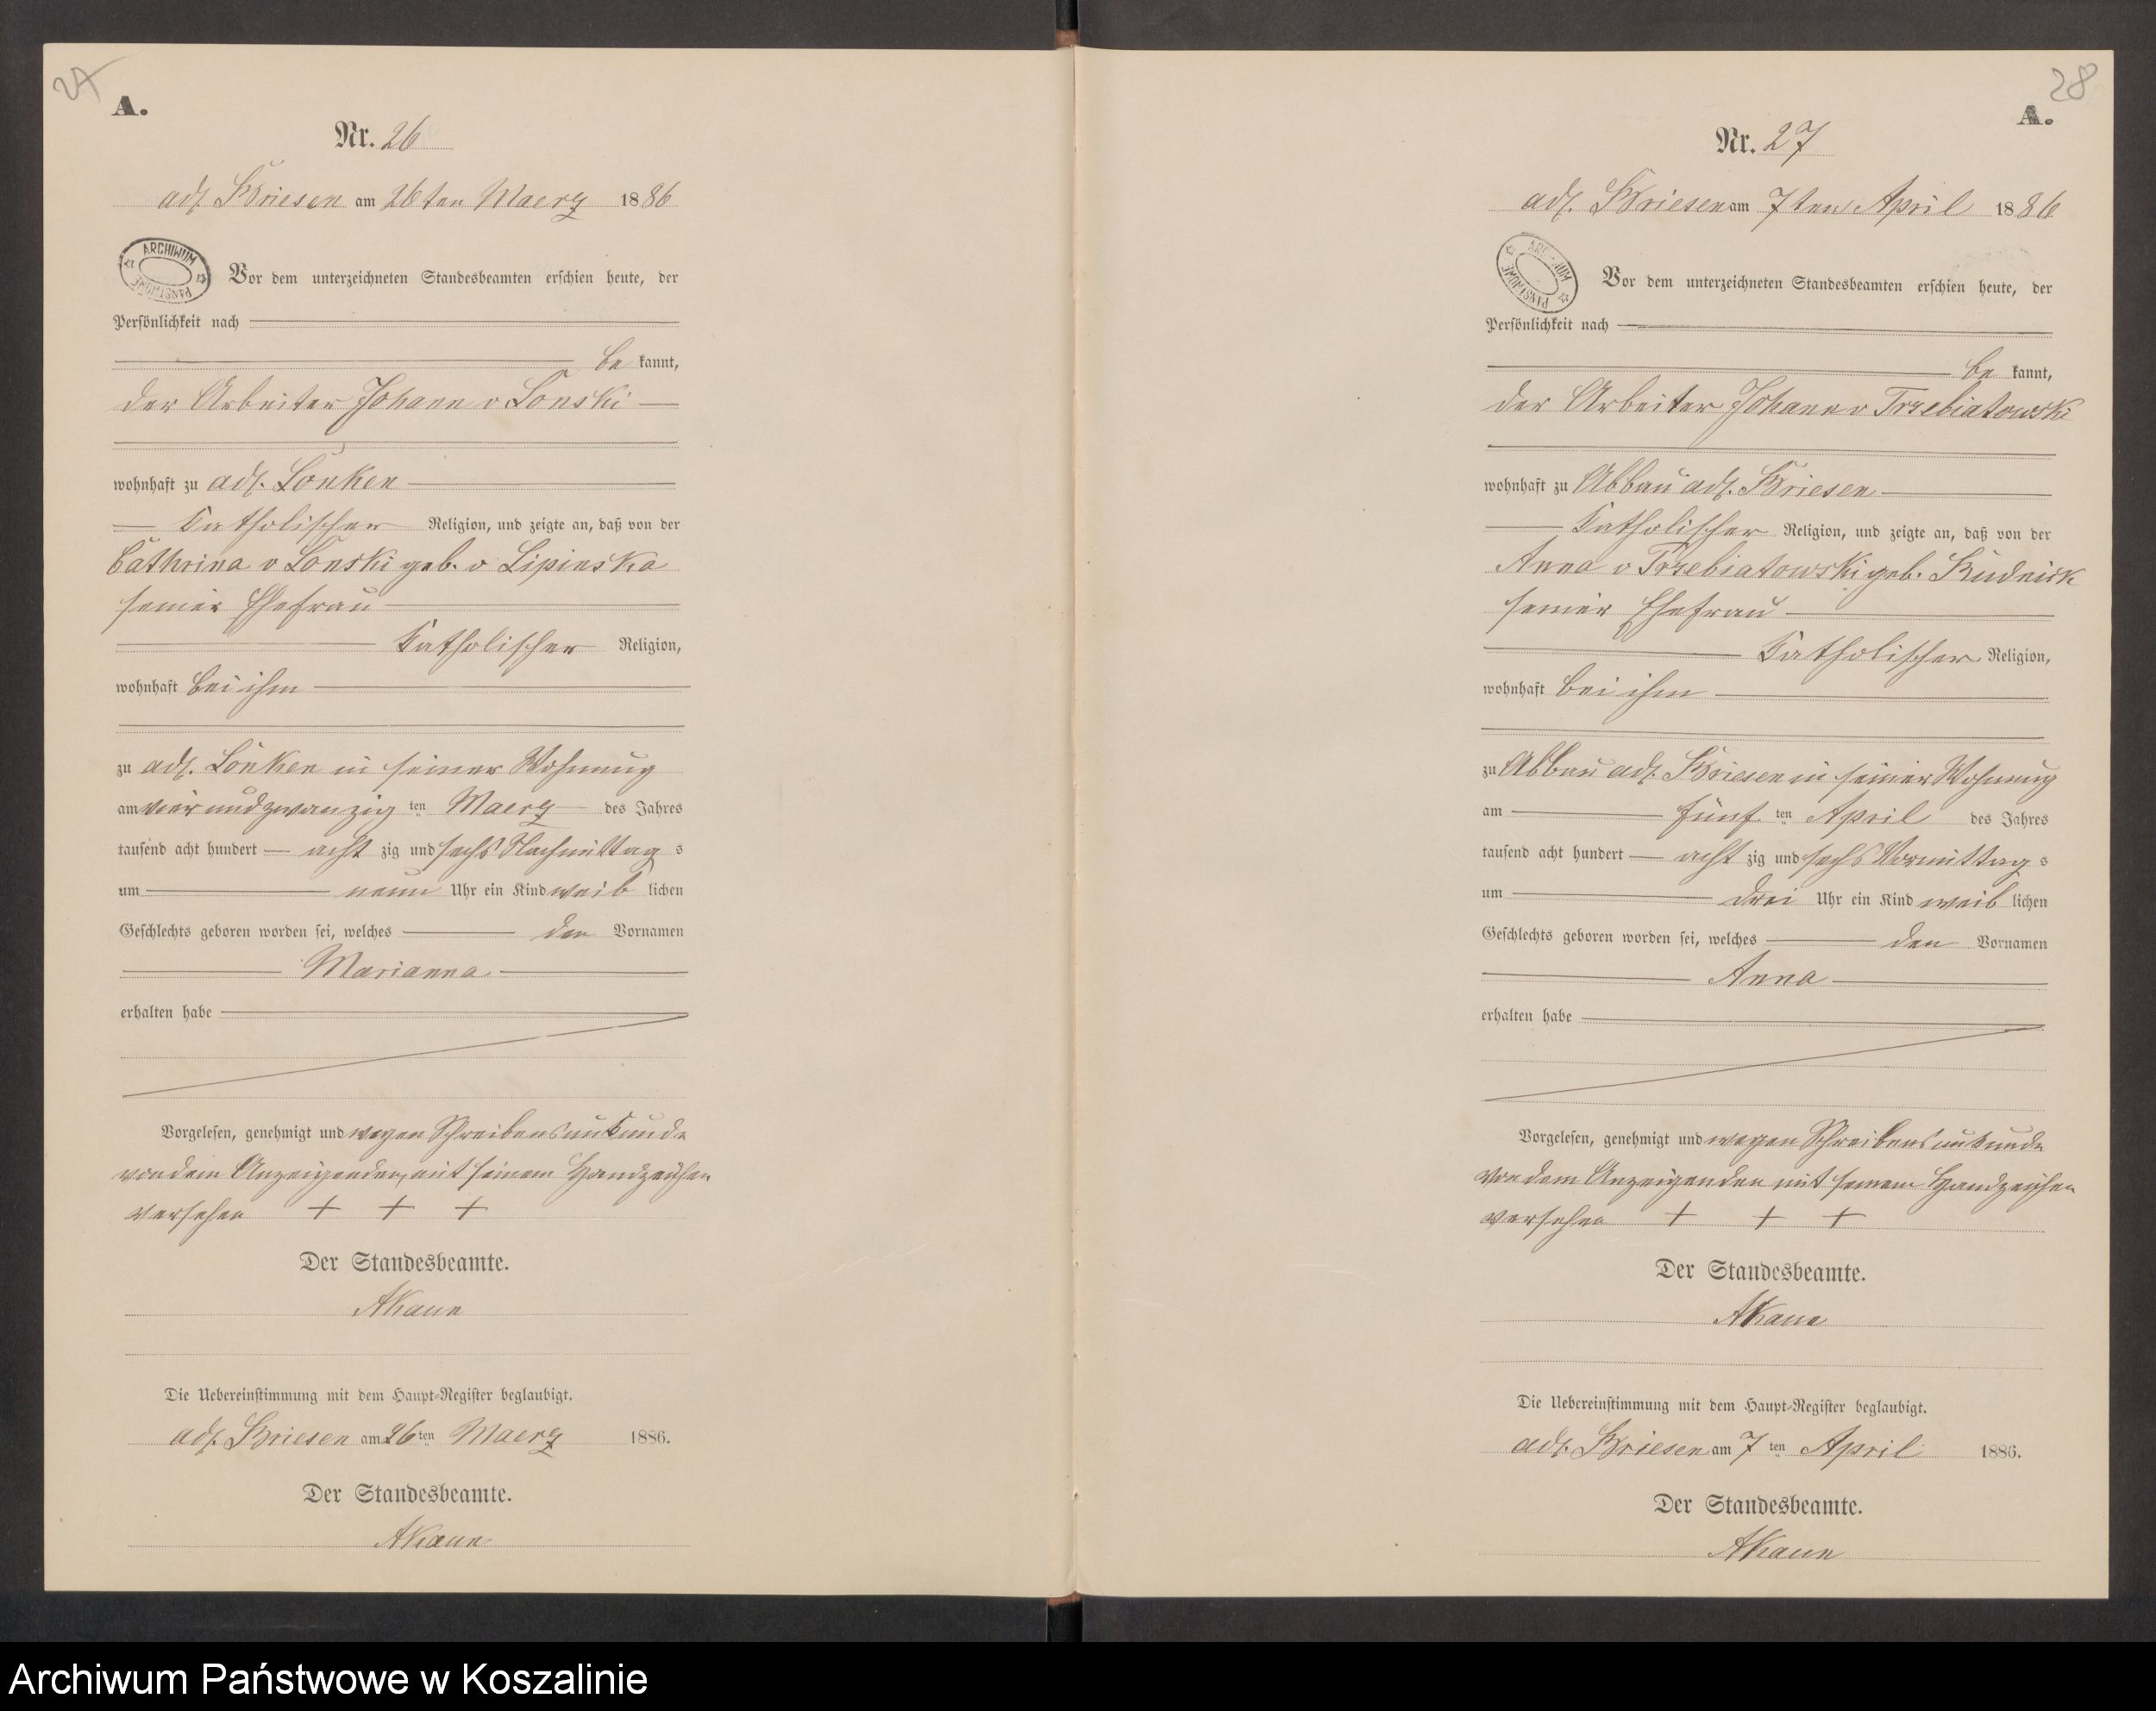 27
A.
Nr. 26
adl. Briesen am 26ten Maerz 1886
ARCHIWUM PAŃSTWOWE
Vor dem unterzeichneten Standesbeamten erschien heute, der
Persönlichkeit nach
be kannt,
der Arbeiter Johann v Lonski
wohnhaft zu adl. Lonken
Katholischer Religion, und zeigte an, daß von der
Cathrina v Lonski geb. v Lipinska
seiner Ehefrau
Katholischer Religion,
wohnhaft bei ihm
zu adl. Lonken in seiner Wohnung
am vier und zwanzig ten Maerz des Jahres
tausend acht hundert acht zig und sechs Nachmittag s
um neun Uhr ein Kind weib lichen
Geschlechts geboren worden sei, welches den Vornamen
Marianna
erhalten habe
Vorgelesen, genehmigt und wegen Schreibensunkunde
von dem Anzeigenden mit seinem Handzeichen
versehen + + +
Der Standesbeamte.
AKaun
Die Uebereinstimmung mit dem Haupt-Register beglaubigt.
adl. Briesen am 26ten Maerz 1886.
Der Standesbeamte.
AKaun
28
A.
Nr. 27
adl. Briesen am 7ten April 1886
ARCHIWUM PAŃSTWOWE
Vor dem unterzeichneten Standesbeamten erschien heute, der
Persönlichkeit nach
be kannt,
der Arbeiter Johann v Trzebiatowski
wohnhaft zu Abbau adl. Briesen
Katholischer Religion, und zeigte an, daß von der
Anna v Trzebiatowski geb. Rudnick
seiner Ehefrau
Katholischer Religion,
wohnhaft bei ihm
zu Abbau adl. Briesen in seiner Wohnung
am fünf ten April des Jahres
tausend acht hundert acht zig und sechs Vormittag s
um drei Uhr ein Kind weib lichen
Geschlechts geboren worden sei, welches den Vornamen
Anna
erhalten habe
Vorgelesen, genehmigt und wegen Schreibensunkunde
von dem Anzeigenden mit seinem Handzeichen
versehen + + +
Der Standesbeamte.
AKaun
Die Uebereinstimmung mit dem Haupt-Register beglaubigt.
adl. Briesen am 7 ten April 1886.
Der Standesbeamte.
AKaun
Archiwum Państwowe w Koszalinie